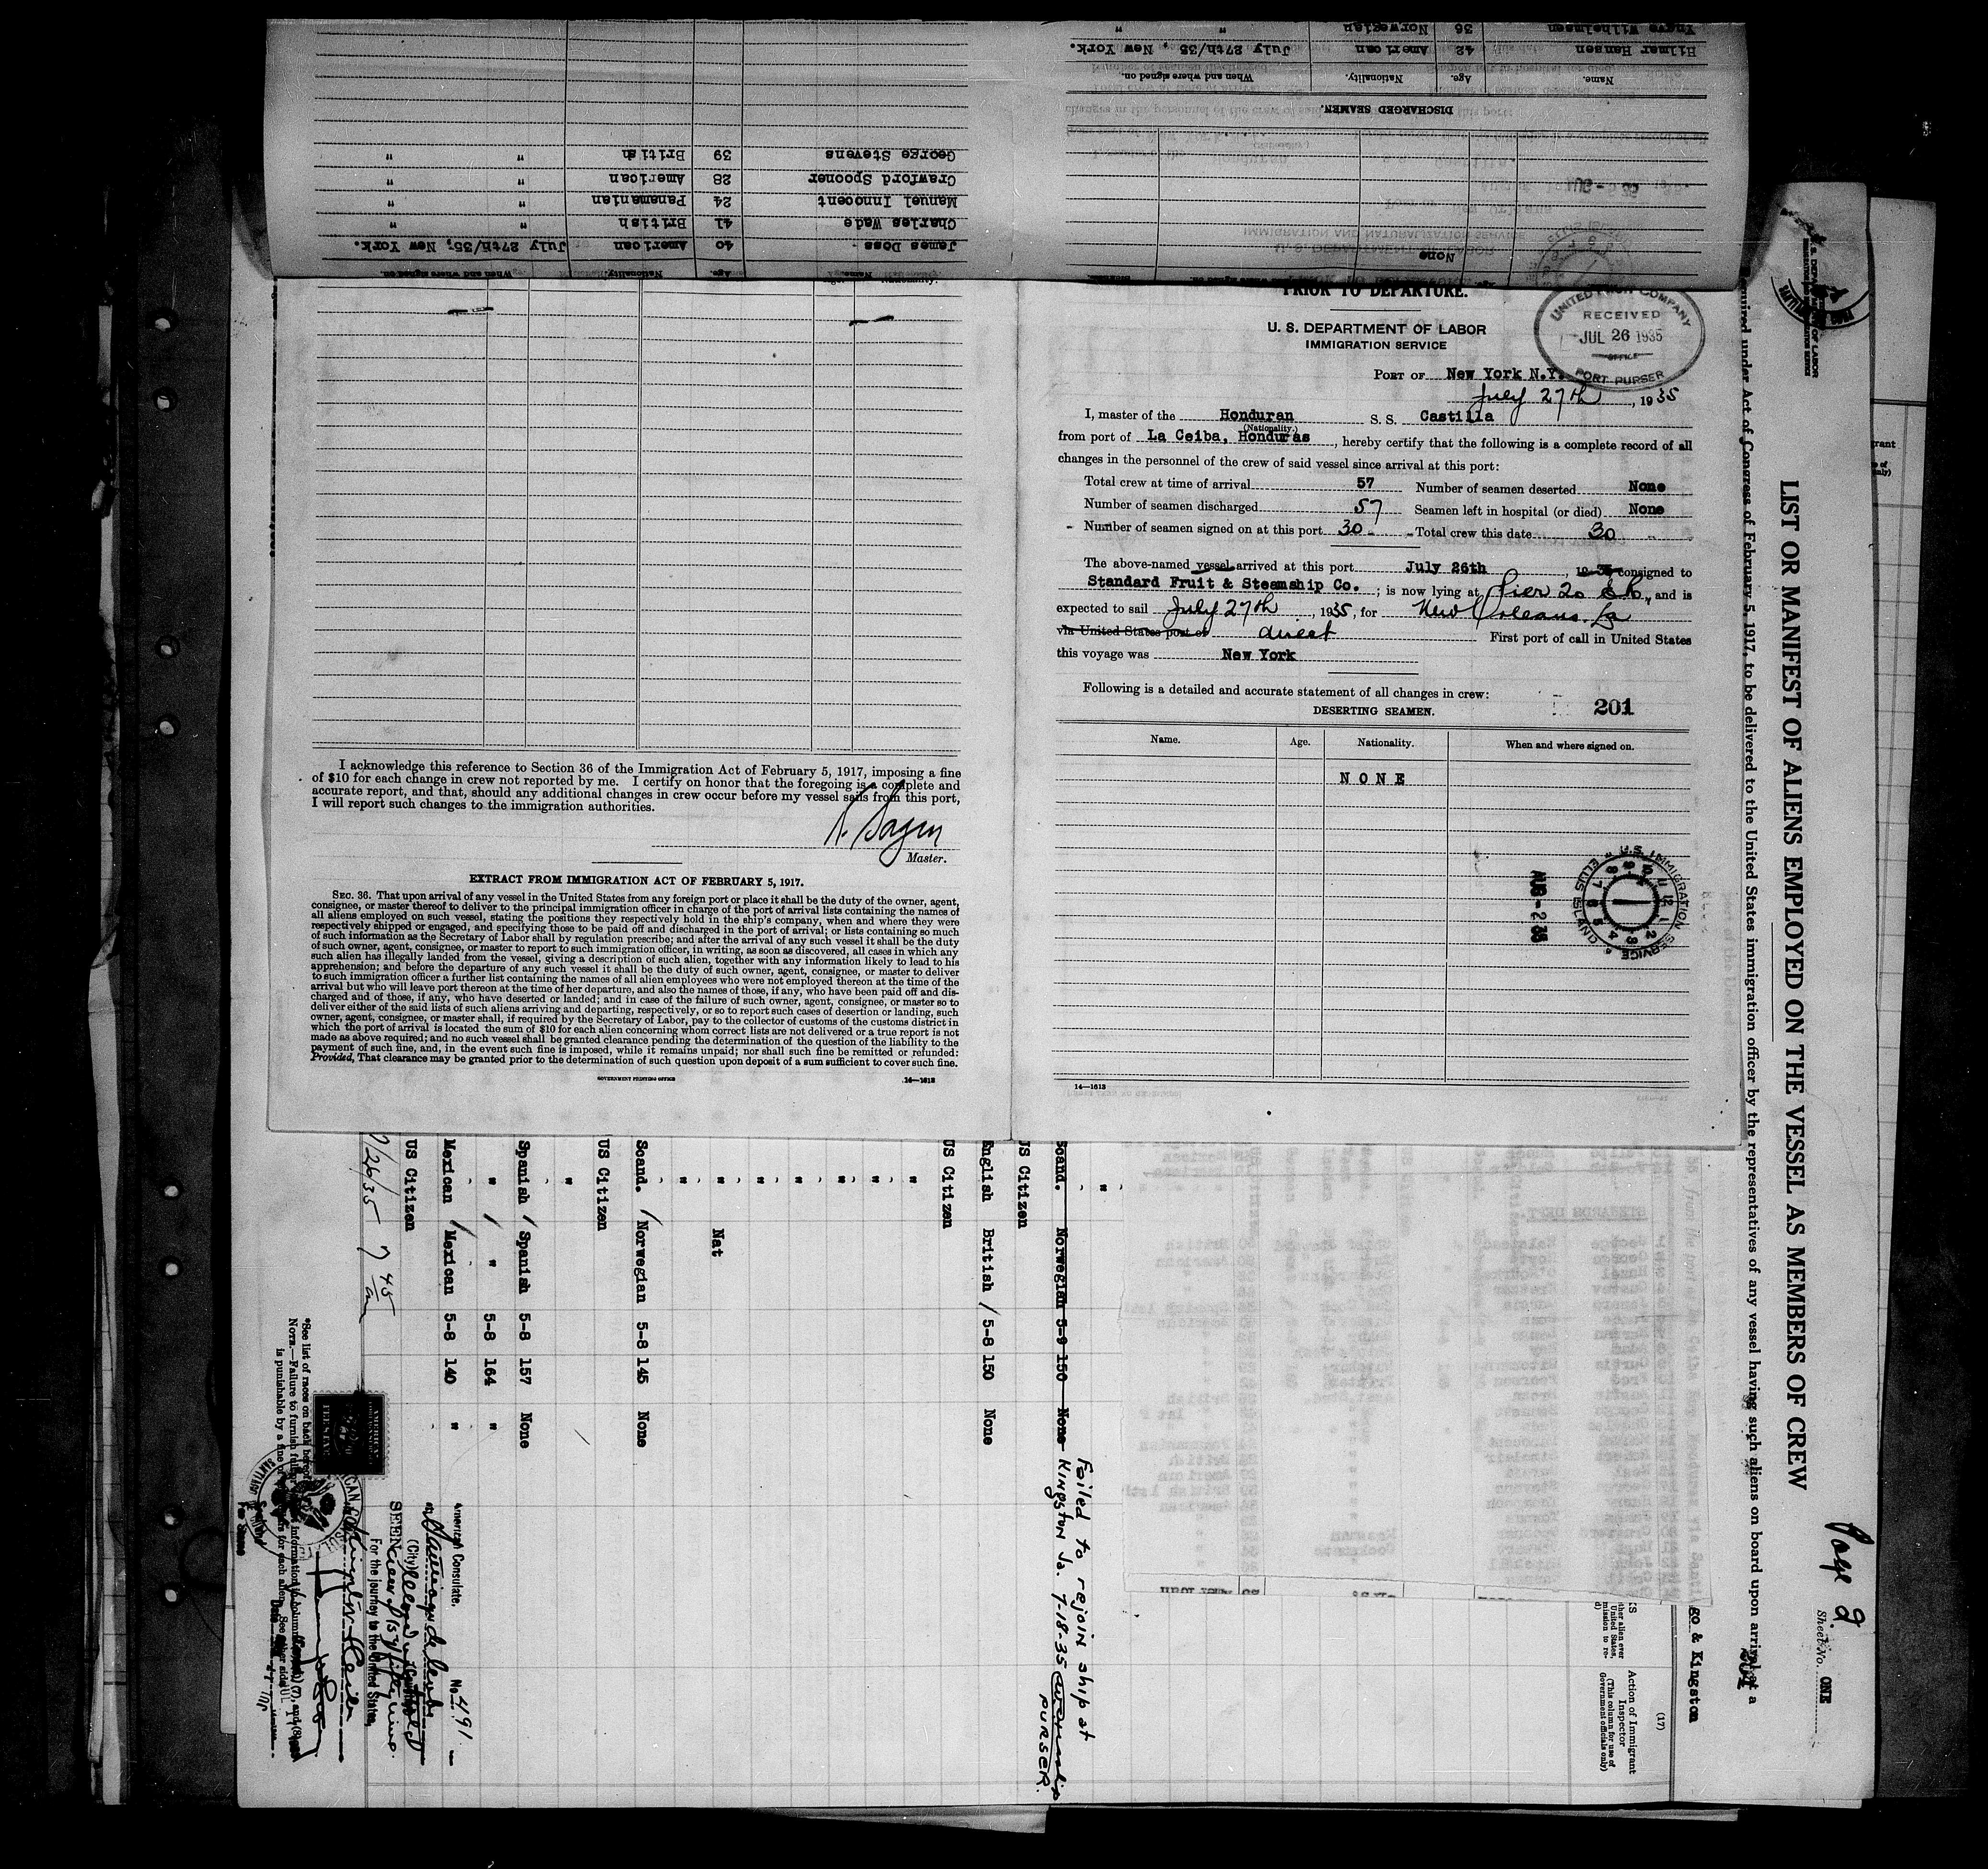 Yngve Wilhelmsen 36 Norwegian " "
Hilmer Hansen 42 American July 27th/35. New York.
Name. Age. Nationality. When and where signed on.
DISCHARGED SEAMEN.
None
George Stevens 39 British " "
Crawford Spooner 28 American " "
Manuel Innocent 24 Panamanian " "
Charles Wade 41 British " "
James Doss 40 American July 27th/35, New York.
Name. Age. Nationality. When and where signed on.
I acknowledge this reference to Section 36 of the Immigration Act of February 5, 1917, imposing a fine
of $10 for each change in crew not reported by me. I certify on honor that the foregoing is a complete and
accurate report, and that, should any additional changes in crew occur before my vessel sails from this port,
I will report such changes to the immigration authorities.
Master.
EXTRACT FROM IMMIGRATION ACT OF FEBRUARY 5, 1917.
SEC. 36. That upon arrival of any vessel in the United States from any foreign port or place it shall be the duty of the owner, agent,
consignee, or master thereof to deliver to the principal immigration officer in charge of the port of arrival lists containing the names of
all aliens employed on such vessel, stating the positions they respectively hold in the ship's company, when and where they were
respectively shipped or engaged, and specifying those to be paid off and discharged in the port of arrival; or lists containing so much
of such information as the Secretary of Labor shall by regulation prescribe; and after the arrival of any such vessel it shall be the duty
of such owner, agent, consignee, or master to report to such immigration officer, in writing, as soon as discovered, all cases in which any
such alien has illegally landed from the vessel, giving a description of such alien, together with any information likely to lead to his
apprehension; and before the departure of any such vessel it shall be the duty of such owner, agent, consignee, or master to deliver
to such immigration officer a further list containing the names of all alien employees who were not employed thereon at the time of the
arrival but who will leave port thereon at the time of her departure, and also the names of those, if any, who have been paid off and dis-
charged and of those, if any, who have deserted or landed; and in case of the failure of such owner, agent, consignee, or master so to
deliver either of the said lists of such aliens arriving and departing, respectively, or so to report such cases of desertion or landing, such
owner, agent, consignee, or master shall, if required by the Secretary of Labor, pay to the collector of customs of the customs district in
which the port of arrival is located the sum of $10 for each alien concerning whom correct lists are not delivered or a true report is not
made as above required; and no such vessel shall be granted clearance pending the determination of the question of the liability to the
payment of such fine, and, in the event such fine is imposed, while it remains unpaid; nor shall such fine be remitted or refunded:
Provided, That clearance may be granted prior to the determination of such question upon deposit of a sum sufficient to cover such fine.
GOVERNMENT PRINTING OFFICE 14—1613
PRIOR TO DEPARTURE.
U. S. DEPARTMENT OF LABOR
IMMIGRATION SERVICE
UNITED FRUIT COMPANY
RECEIVED
JUL 26 1935
OFFICE
PORT PURSER
PORT OF New York N.Y.
July 27th, 1935
I, master of the Honduran S. S. Castilla
(Nationality.)
from port of La Ceiba, Honduras, hereby certify that the following is a complete record of all
changes in the personnel of the crew of said vessel since arrival at this port:
Total crew at time of arrival 57 Number of seamen deserted None
Number of seamen discharged 57 Seamen left in hospital (or died) None
Number of seamen signed on at this port 30 Total crew this date 30
The above-named vessel arrived at this port July 26th, 1935 consigned to
Standard Fruit & Steamship Co.; is now lying at Pier 20 E.R., and is
expected to sail July 27th, 1935, for New Orleans. La
via United States port of direct First port of call in United States
this voyage was New York
Following is a detailed and accurate statement of all changes in crew:
DESERTING SEAMEN. 201
Name. Age. Nationality. When and where signed on.
NONE
AUG -2 35
U.S. IMMIGRATION SERVICE ELLIS ISLAND
14—1613
LIST OR MANIFEST OF ALIENS EMPLOYED ON THE VESSEL AS MEMBERS OF CREW
Page 2
Sheet No. ONE
required under Act of Congress of February 5, 1917, to be delivered to the United States immigration officer by the representatives of any vessel having such aliens on board upon arrival at a
go & Kingston
(17)
Action of Immigrant
Inspector
(This column for use of
Government officials only)
Scand. Norwegian 5-9 150 None
Failed to rejoin ship at
KINGSTON Ja. 7-18-35
PURSER.
US Citizen
English British 5-8 150 None
US Citizen
" Nat
Scand. Norwegian 5-8 145 None
US Citizen
"
Spanish Spanish 5-8 157 None
" " 5-8 164 "
Mexican Mexican 5-8 140 "
US Citizen
7/26/35 7 45
American Consulate.
No. 4191
at Santiago de Cuba
(City)
SEEN
For the journey to the United States,
*See list of races on back hereof.
NOTE.—Failure to furnish full
is punishable by a fine